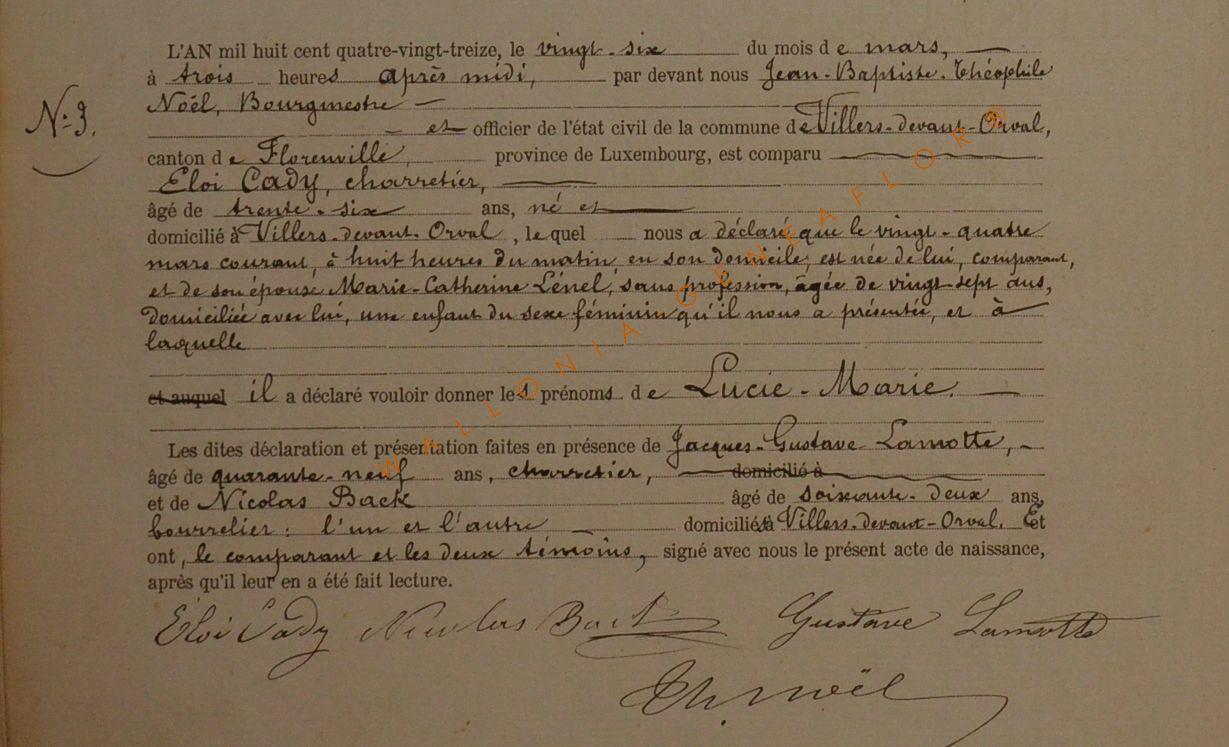 L'AN mil huit cent quatre-vingt-treize, le vingt-six du mois de mars,
à trois heures après midi, par devant nous Jean-Baptiste-Théophile
Noël, Bourgmestre
N° 3.
et officier de l'état civil de la commune de Villers-devant-Orval,
canton de Florenville, province de Luxembourg, est comparu
Eloi Cady, charretier,
âgé de trente-six ans, né et
domicilié à Villers-devant-Orval, lequel nous a déclaré que le vingt-quatre
mars courant, à huit heures du matin, en son domicile, est née de lui, comparant,
et de son épouse Marie-Catherine Lénel, sans profession, âgée de vingt-sept ans,
domiciliée avec lui, une enfant du sexe féminin qu'il nous a présentée, et à
laquelle
et auquel il a déclaré vouloir donner les prénoms de Lucie-Marie.
Les dites déclaration et présentation faites en présence de Jacques-Gustave Lamotte,
âgé de quarante-neuf ans, charretier, domicilié à
et de Nicolas Back âgé de soixante-deux ans,
bourrelier : l'un et l'autre domiciliés à Villers-devant-Orval. Et et
ont, le comparant et les deux témoins, signé avec nous le présent acte de naissance,
après qu'il leur en a été fait lecture.
Éloi Cady Nicolas Back Gustave Lamotte
Th. Noël
WALLONIA GENEAFLOR®